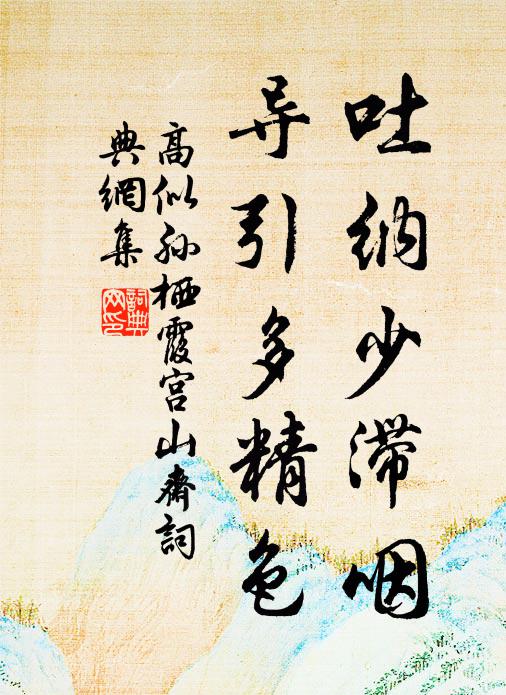 吐纳少滞咽
导引多精色
高似孙栖霞宫山斋词
典網集
詞典網印